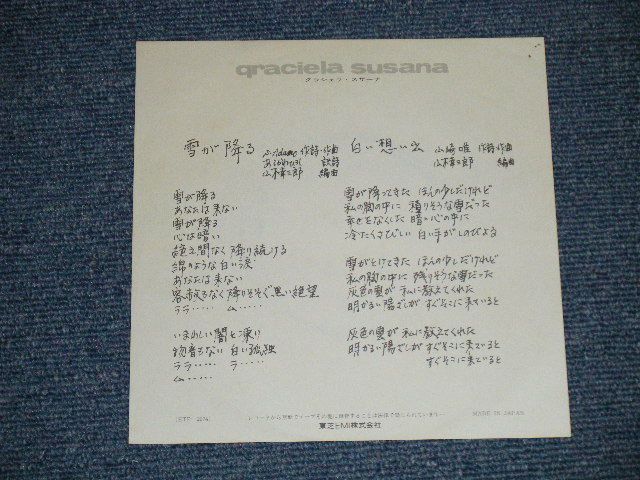 graciela susana
グラシェラ・スサーナ
雪が降る
Adamo 作詩・作曲
訳詩
山木幸三郎 編曲
雪が降る
あなたは来ない
雪が降る
心は暗い
絶え間なく降り続ける
綿のような白い涙
あなたは来ない
容赦なく降りそそぐ黒い絶望
ララ…… ム……
いまわしい闇と凍り
物音もない 白い孤独
ララ…… ラ……
ム……
白い想い出
山崎唯 作詩・作曲
山木幸三郎 編曲
雪が降ってきた ほんの少しだけれど
私の胸の中に 積りそうな雪だった
幸せをなくした 暗い心の中に
冷たくさびしい 白い手がしのびよる
雪がとけてきた ほんの少しだけれど
私の胸の中に 残りそうな雪だった
灰色の雲が 私に教えてくれた
明かるい陽ざしが すぐそこに来ていると
灰色の雲が 私に教えてくれた
明かるい陽ざしが すぐそこに来ていると
すぐそこに来ていると
レコードから無断でテープその他に録音することは法律で禁じられています
MADE IN JAPAN
東芝EMI株式会社